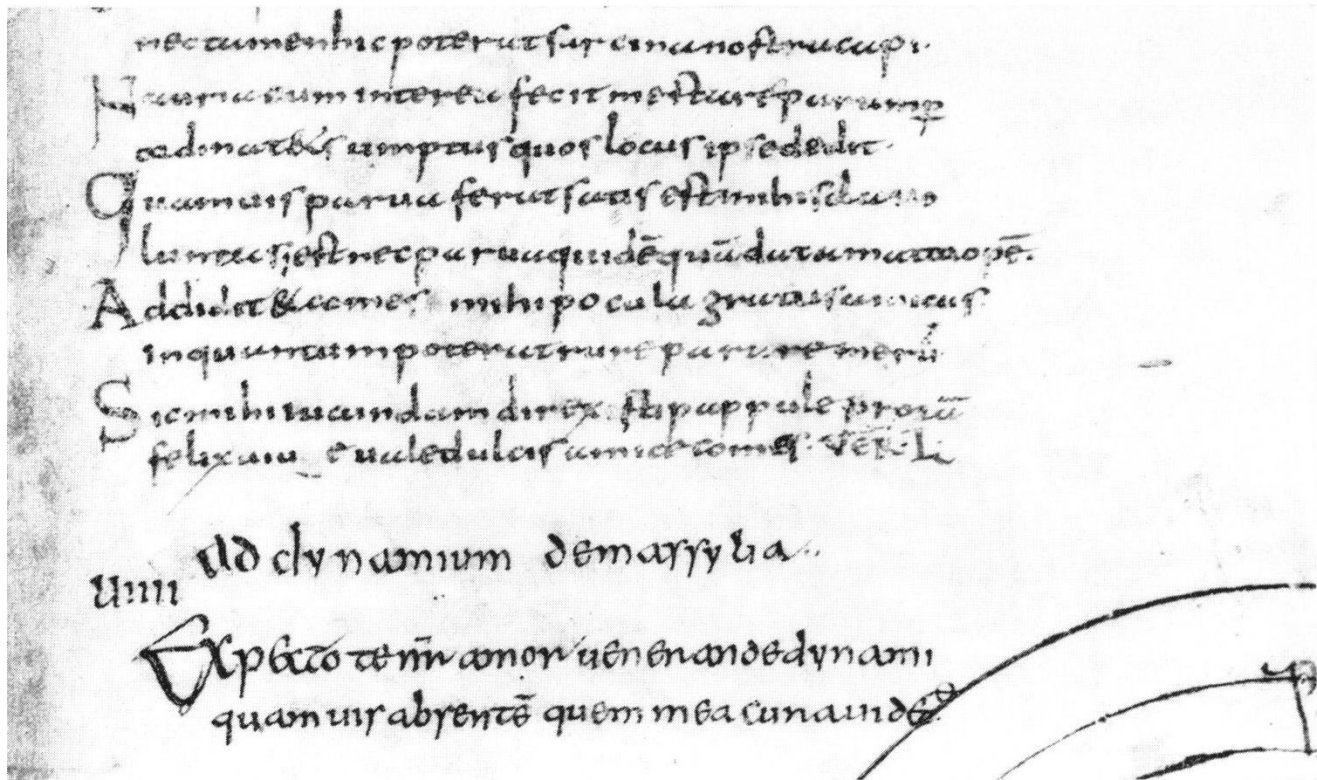 nec tamen hic poterat sarcina nostra capi.
Nauriacum interea fecit me stare parump̱
sumptus quos locus ipse dedit.
Quamuis parua ferat satis est mihi sola uo
luntas; est nec parua quidē quā dat amator opē.
Addidit & comes mihi pocula gratus amicus
inquantum poterat rure parare merū
Sic mihi iucundam direxisti pappule prorā
felix uiue uale dulcis amice comes. VER. L
ad dynamium de massylia..
uiiii
Expecto te nr̄ amor uenerande dynami
quamuis absentē quem mea cura uidet